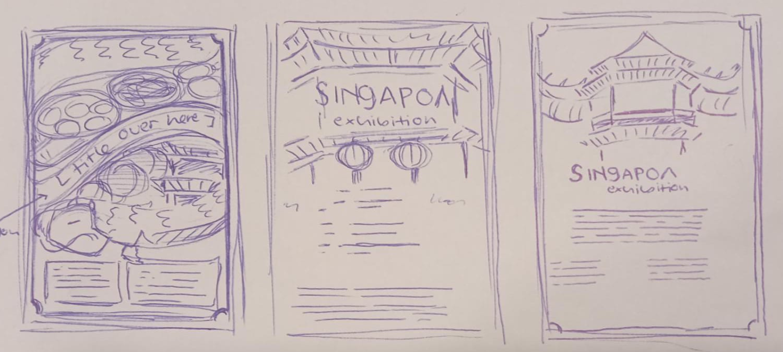 [title over here]
SINGAPOA
exhibition
SINGAPOA
exhibition